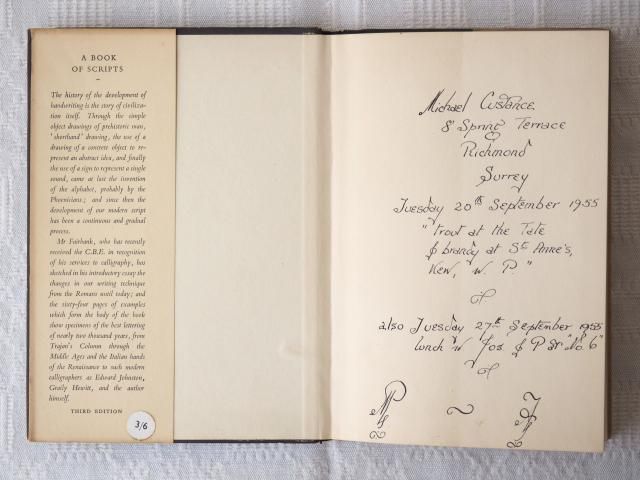 A BOOK
OF SCRIPTS
The history of the development of
handwriting is the story of civiliza-
tion itself. Through the simple
object drawings of prehistoric man,
'shorthand' drawing, the use of a
drawing of a concrete object to re-
present an abstract idea, and finally
the use of a sign to represent a single
sound, came at last the invention
of the alphabet, probably by the
Phoenicians; and since then the
development of our modern script
has been a continuous and gradual
process.
Mr Fairbank, who has recently
received the C.B.E. in recognition
of his services to calligraphy, has
sketched in his introductory essay the
changes in our writing technique
from the Romans until today; and
the sixty-four pages of examples
which form the body of the book
show specimens of the best lettering
of nearly two thousand years, from
Trajan's Column through the
Middle Ages and the Italian hands
of the Renaissance to such modern
calligraphers as Edward Johnston,
Graily Hewitt, and the author
himself.
THIRD EDITION
3/6
Michael Custance
8 Spring Terrace
Richmond
Surrey
Tuesday 20th September 1955
"Trout at the Tate
& brandy at St. Anne's,
Kew, W. P."
also Tuesday 27th September 1955
lunch W Jos & P at "No. 6"